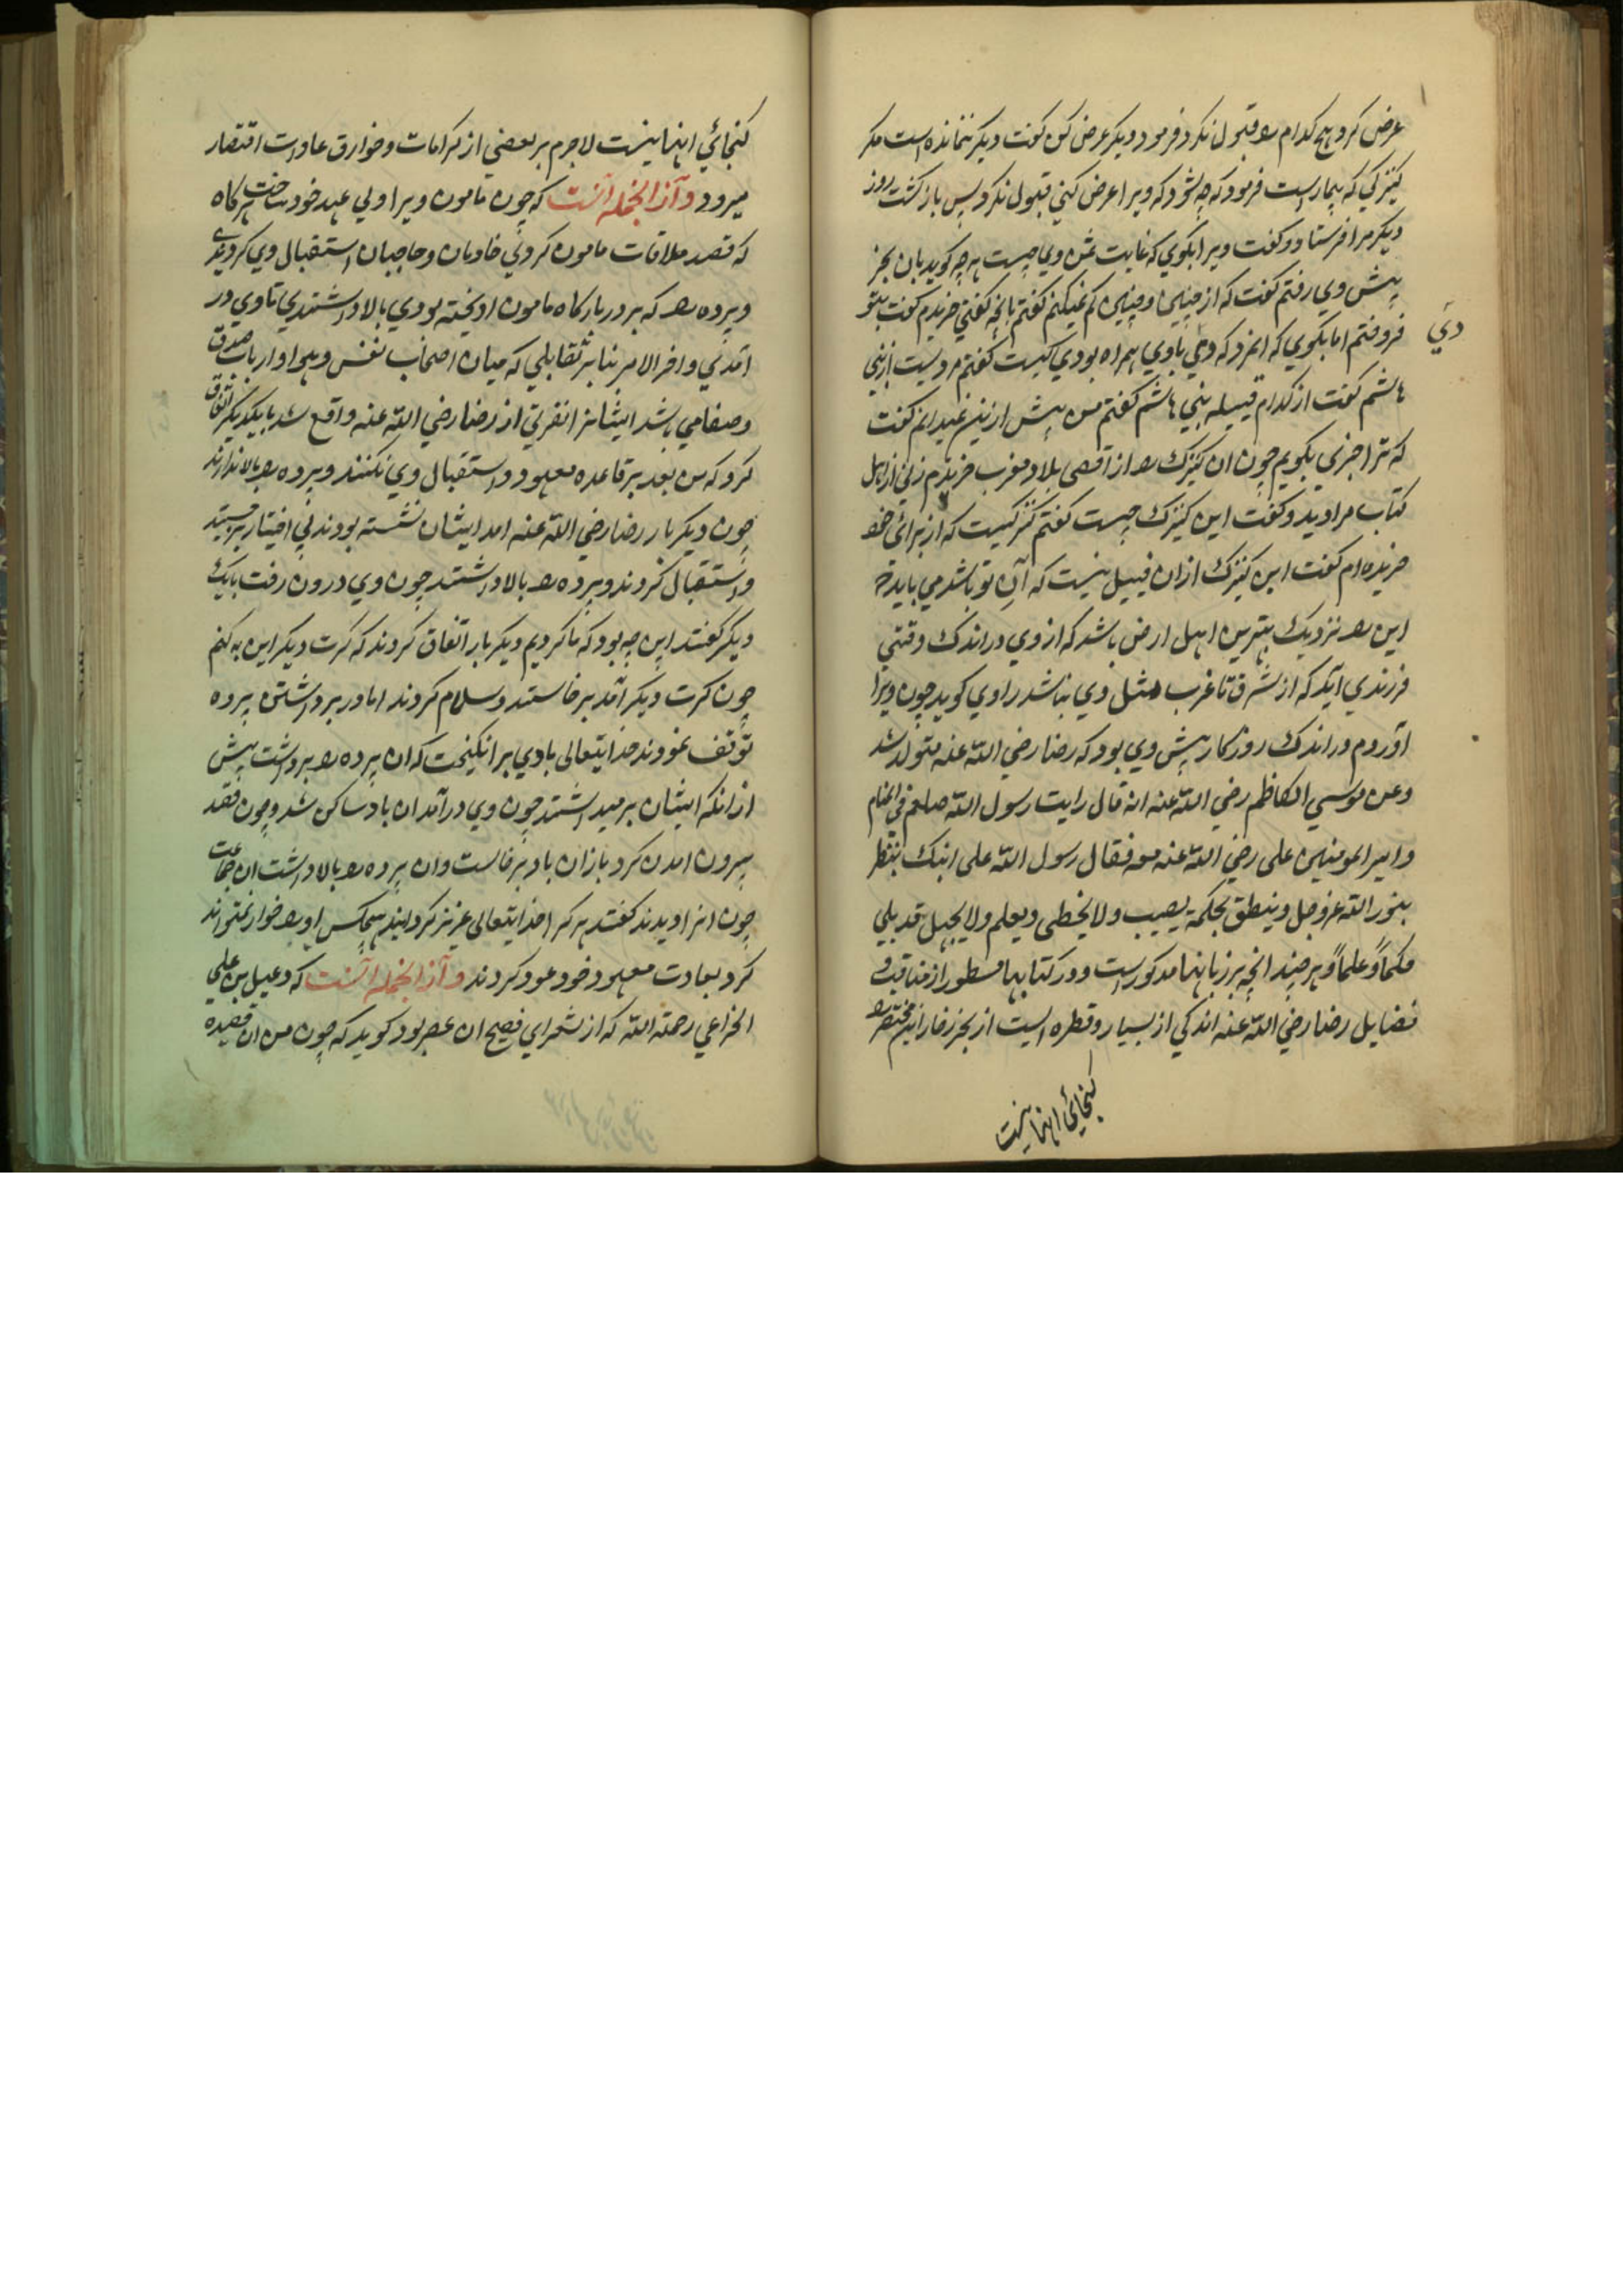 عرض کرد هیچ کدام را قبول نکرد فرمود دیگر عرض کن گفت دیگر نمانده است مکر
کنیزکی که بیمارست فرمود که چه شود که ویرا عرض کنی قبول نکرد پس بازکشت روز
دیکر مرا فرستاد و کفت ویرا بکوی که غایت ثمن وی چیست هر چه کوید بان بخر
پیش وی رفتم کفت که از چنین و چنین کم نمیکنم کفتم بانچه کفتی خریدم کفت بتو
فروختم اما بکوی که انمرد که دی باوی همراه بودی کیست کفتم مردیست از بنی
دی
هاشم کفت از کدام قبیله بنی هاشم کفتم من پیش ازین نمیدانم کفت
که ترا خبری بکویم چون ان کنیزک را از اقصی بلاد مغرب خریدم زنی از اهل
کتاب مرا دید و کفت این کنیزک چیست کفتم کنیزکیست که از برای خود
خریده ام کفت این کنیزک ازان قبیل نیست که آن تو باشد می باید که
این را نزدیک بهترین اهل ارض باشد که از وی در اندک وقتی
فرزندی آید که از شرق تا غرب مثل وی نباشد راوی کوید چون ویرا
آوردم در اندک روزکار پیش وی بود که رضا رضی الله عنه متولد شد
وعن موسی الکاظم رضی الله عنه انه قال رایت رسول الله صلعم فی المنام
و امیرالمومنین علی رضی الله عنه معه فقال رسول الله علی ابنک ینظر
بنور الله عز وجل وینطق بحکمة یصیب ولا یخطی ویعلم ولا یجهل قد ملی
حکماً وعلماً و هر چند انچه بر زبانها مذکورست و در کتابها مسطور از مناقب و
فضایل رضا رضی الله عنه اندکی از بسیار و قطره ایست از بحر زخار این مختصر را
کنجائی انها نیست
کنجائی انها نیست لاجرم بر بعضی از کرامات و خوارق عادات اقتصار
میرود و آز الجمله آنست که چون مامون ویرا ولی عهد خود ساخت هرکاه
که قصد ملاقات مامون کردی خادمان و حاجبان استقبال وی کردندی
و پرده را که بر در بارکاه مامون اویخته بودی بالا داشتندی تا وی در
آمدی و اخر الامر بنا بر تقابلی که میان اصحاب نفس و هوا و ارباب صدق
و صفا می باشد ایشانرا نفرتی از رضا رضی الله عنه واقع شد با یکدیکر اتفاق
کرد که من بعد بر قاعده معهود و استقبال وی نکنند و پرده را بالا ندارند
چون دیکر بار رضا رضی الله عنه امد ایشان نشسته بودند بی اختیار برجستند
و استقبال کردند و پرده را بالا داشتند چون وی درون رفت بایک
دیکر کفتند این چه بود که ما کردیم دیکر بار اتفاق کردند که کرت دیکر این نه کنم
چون کرت دیکر آمد برخاستند و سلام کردند اما در برداشتن پرده
توقف نمودند خدایتعالی بادی برانکیخت که ان پرده را برداشت پیش
ازانکه ایشان برمیداشتند چون وی درآمد ان باد ساکن شد و چون قصد
بیرون امدن کرد بازان باد برخاست و ان پرده را بالا داشت ان جماعت
چون انرا دیدند کفتند هر کرا خدایتعالی عزیز کرداند هیچکس او را خوار نمیتواند
کرد بعادت معهود خود عود کردند و آز الجمله آنست که دعبل بن علی
الخزاعی رحمة الله که از شعرای فصیح ان عصر بود کوید که چون من ان قصیده